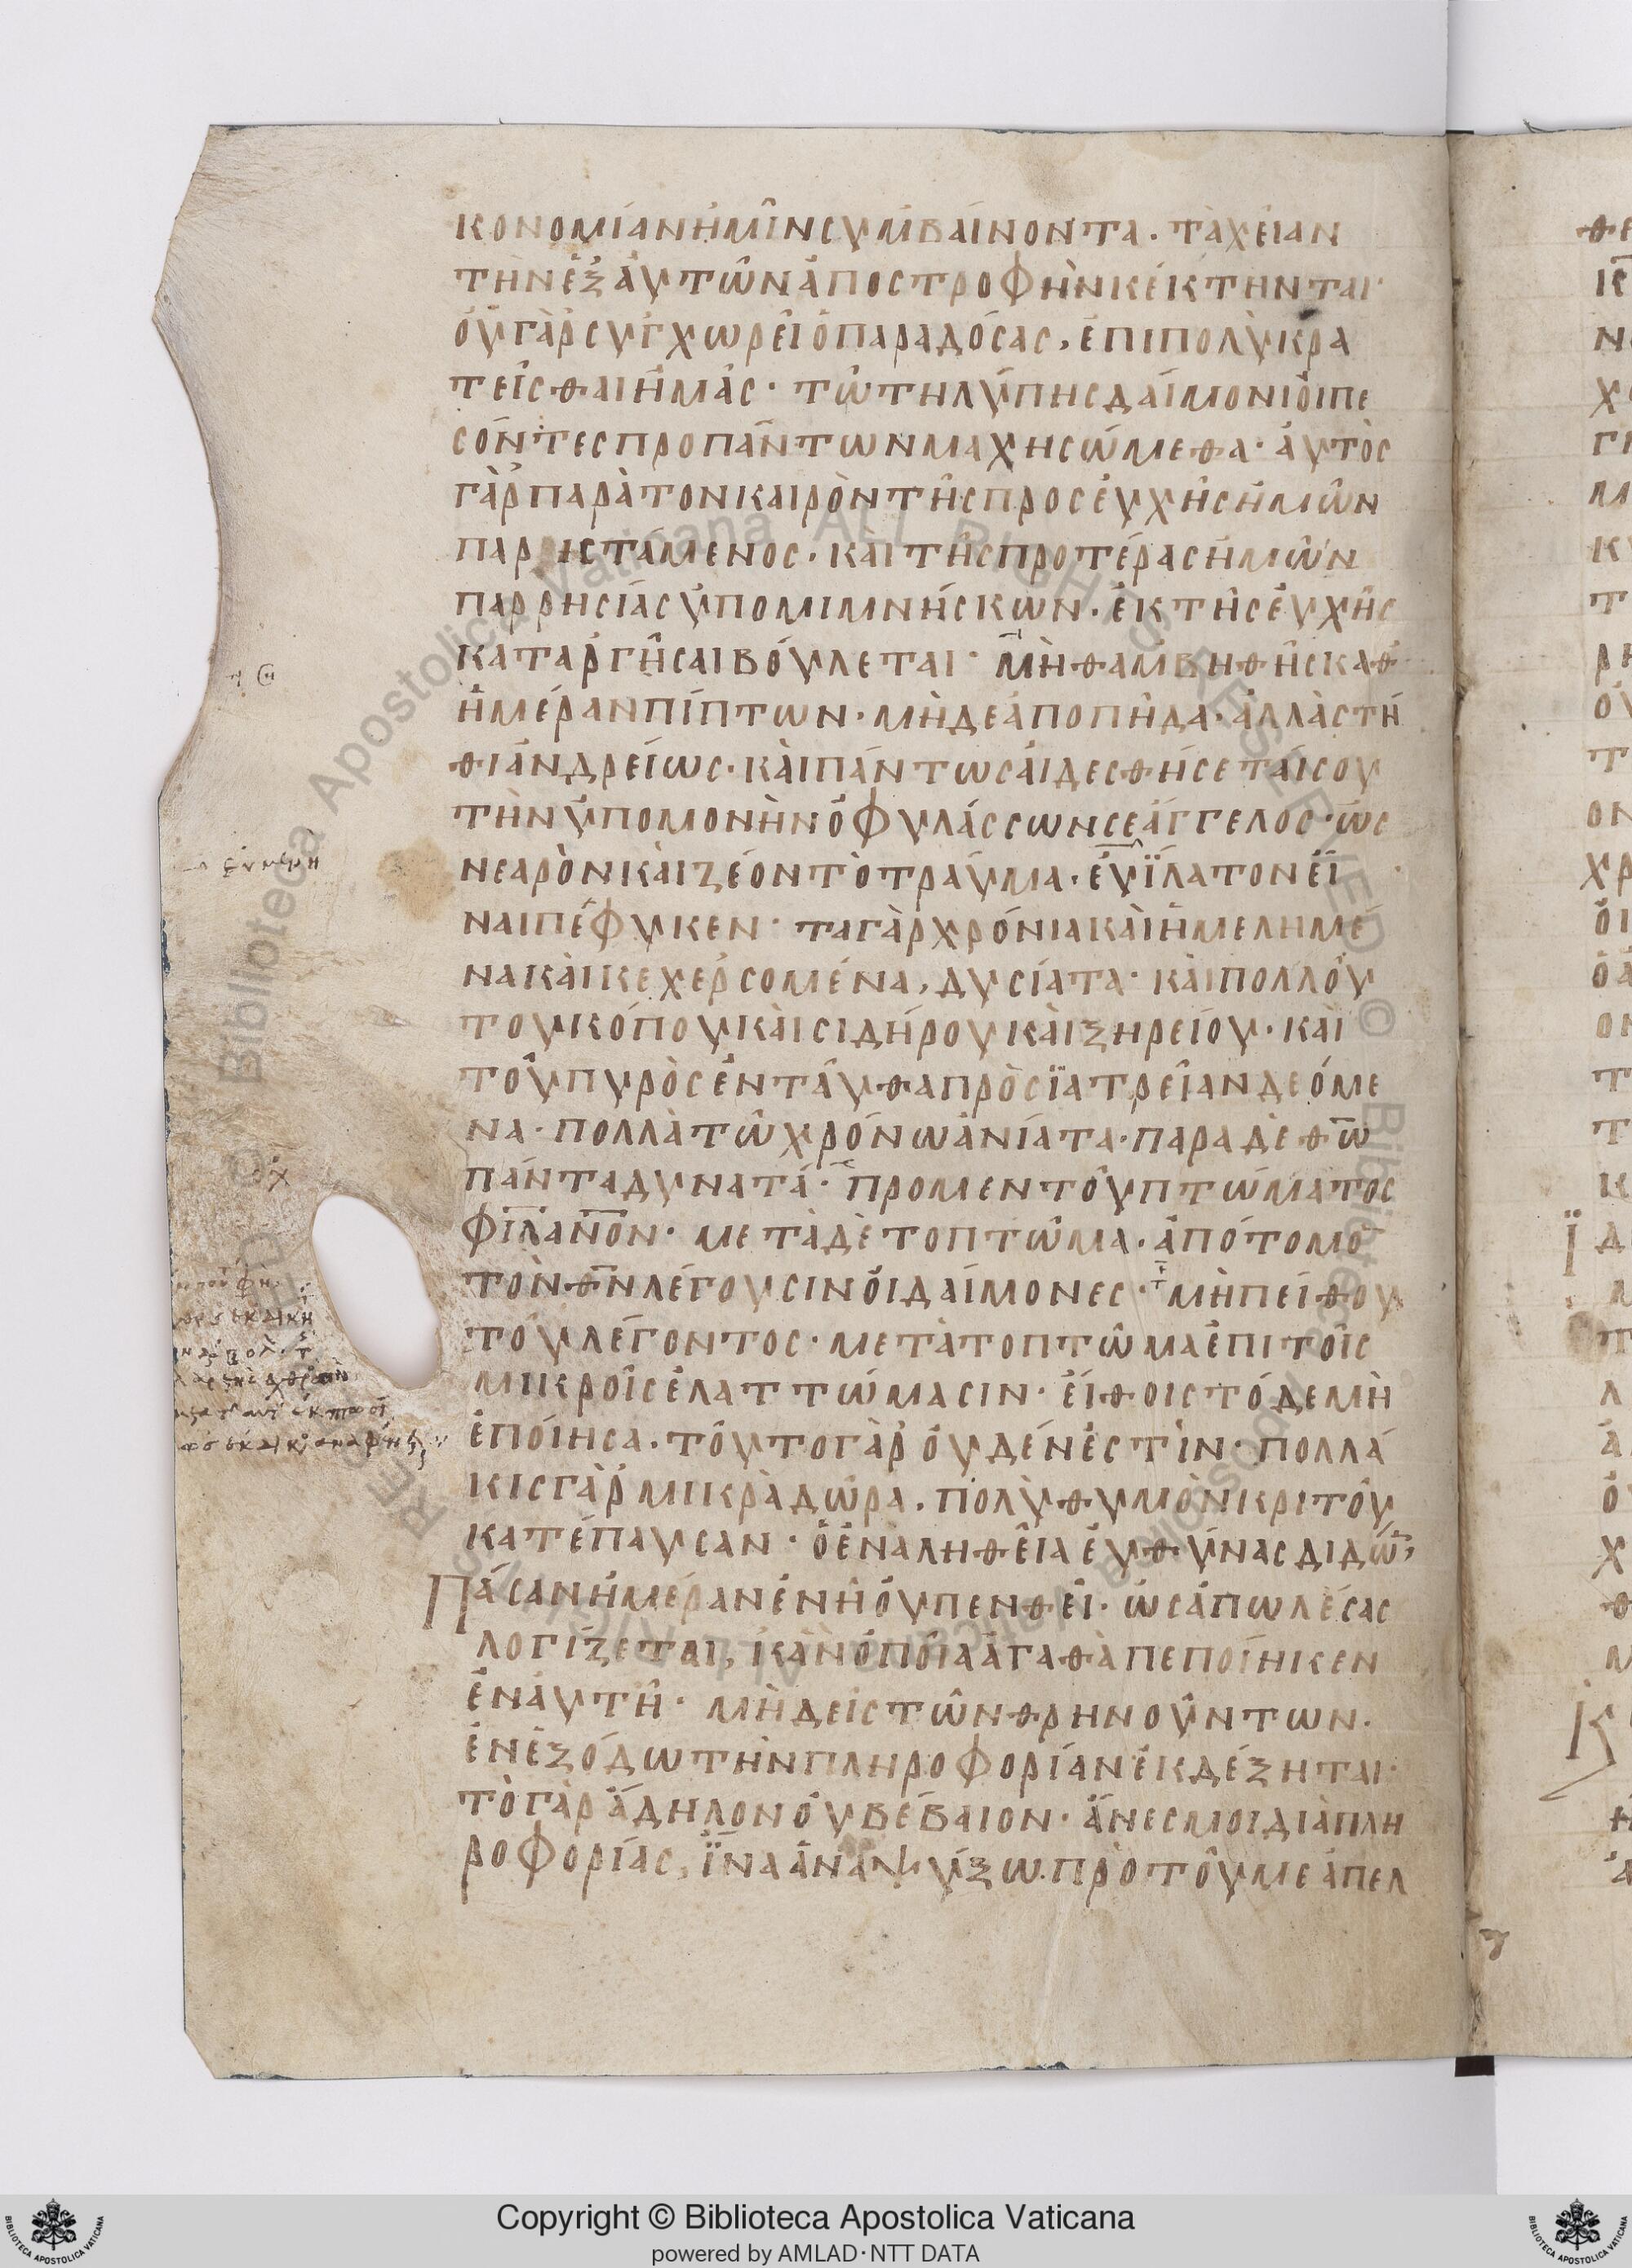 κονομίαν ἡμῖν συμβαίνοντα. ταχεῖαν
τὴν ἐξ αὐτῶν ἀποστροφὴν κέκτηνται·
οὐ γὰρ συγχωρεῖ ὁ παραδόσας, ἐπιπολὺ κρα
τεῖσθαι ἡμᾶς· τῶ τη λύπης δαίμονι οἱ πε
σόντες προπάντων μαχησώμεθα· αὐτὸς
γὰρ παρὰ τον καιρὸν τῆς προσευχῆς ἡμῶν
παρηστάμενος. και τῆς προτέρας ἡμῶν
παρρησίας ὑπομιμνήσκων. ἐκ τῆς ἐυχῆς
καταργῆσαι βούλεται· Μὴ θαμβηθῆς καθ
ἡμέραν πίπτων. μὴ δε ἀποπήδα. ἀλλὰ στῆ
θι ἀνδρείως. καὶ πάντως αἰδεσθήσεταί σου
τὴν ὑπομονὴν ὁ φυλάσσων σε ἄγγελος. ὡς
νεαρὸν καὶ ζέον τὸ τραύμα. ἐυΐλατον εἶ
ναι πέφυκεν· τα γὰρ χρόνια καὶ ἠμελημέ
να καὶ κεχερσομένα, δυσίατα· καὶ πολλοῦ
του κόπου καὶ σιδήρου καὶ ξηρείου. καὶ
τοῦ πυρὸς ἐνταῦθα πρὸς ϊατρεῖαν δεόμε
να. πολλὰ τῶ χρόνω ἀνίατα. παρα δὲ θω
πάντα δυνατά· προ μεν τοῦ πτώματος
φιλανον· μετὰ δὲ το πτῶμα. ἀπότομο
τὸν θν λέγουσιν ὁι δαίμονες· μὴ πείθου
τοῦ λέγοντος. μετὰ το πτῶμα ἐπι τοῖς
μικροῖς ἐλαττώμασιν. εἴθοις τόδε μὴ
ἐποίησα. τοῦτο γὰρ οὐδέν ἐστὶν· πολλά
κις γὰρ μικρὰ δῶρα. πολὺ θυμὸν κριτοῦ
κατέπαυσαν· ὁ ἐν ἀληθεῖα ἐυθύνας διδῶ,
Πάσαν ἡμέραν ἐν ἧ οὐ πενθεῖ. ὡς ἀπωλέσας
λογίζεται, κὰν ὁποῖα ἀγαθὰ πεποίηκεν
ἐν αὐτῆ· μὴδεὶς τῶν θρηνούντων.
ἐν ἐξόδω τὴν πληροφορίαν ἐκδέξηται·
τὸ γὰρ ἄδηλον οὐ βέβαιον· ἄνες μοι διὰ πλη
ροφορίας, ἵνα ἀναψύξω. πρὸ τοῦ με ἀπελ
Copyright © Biblioteca Apostolica Vaticana
powered by AMLAD·NTT DATA